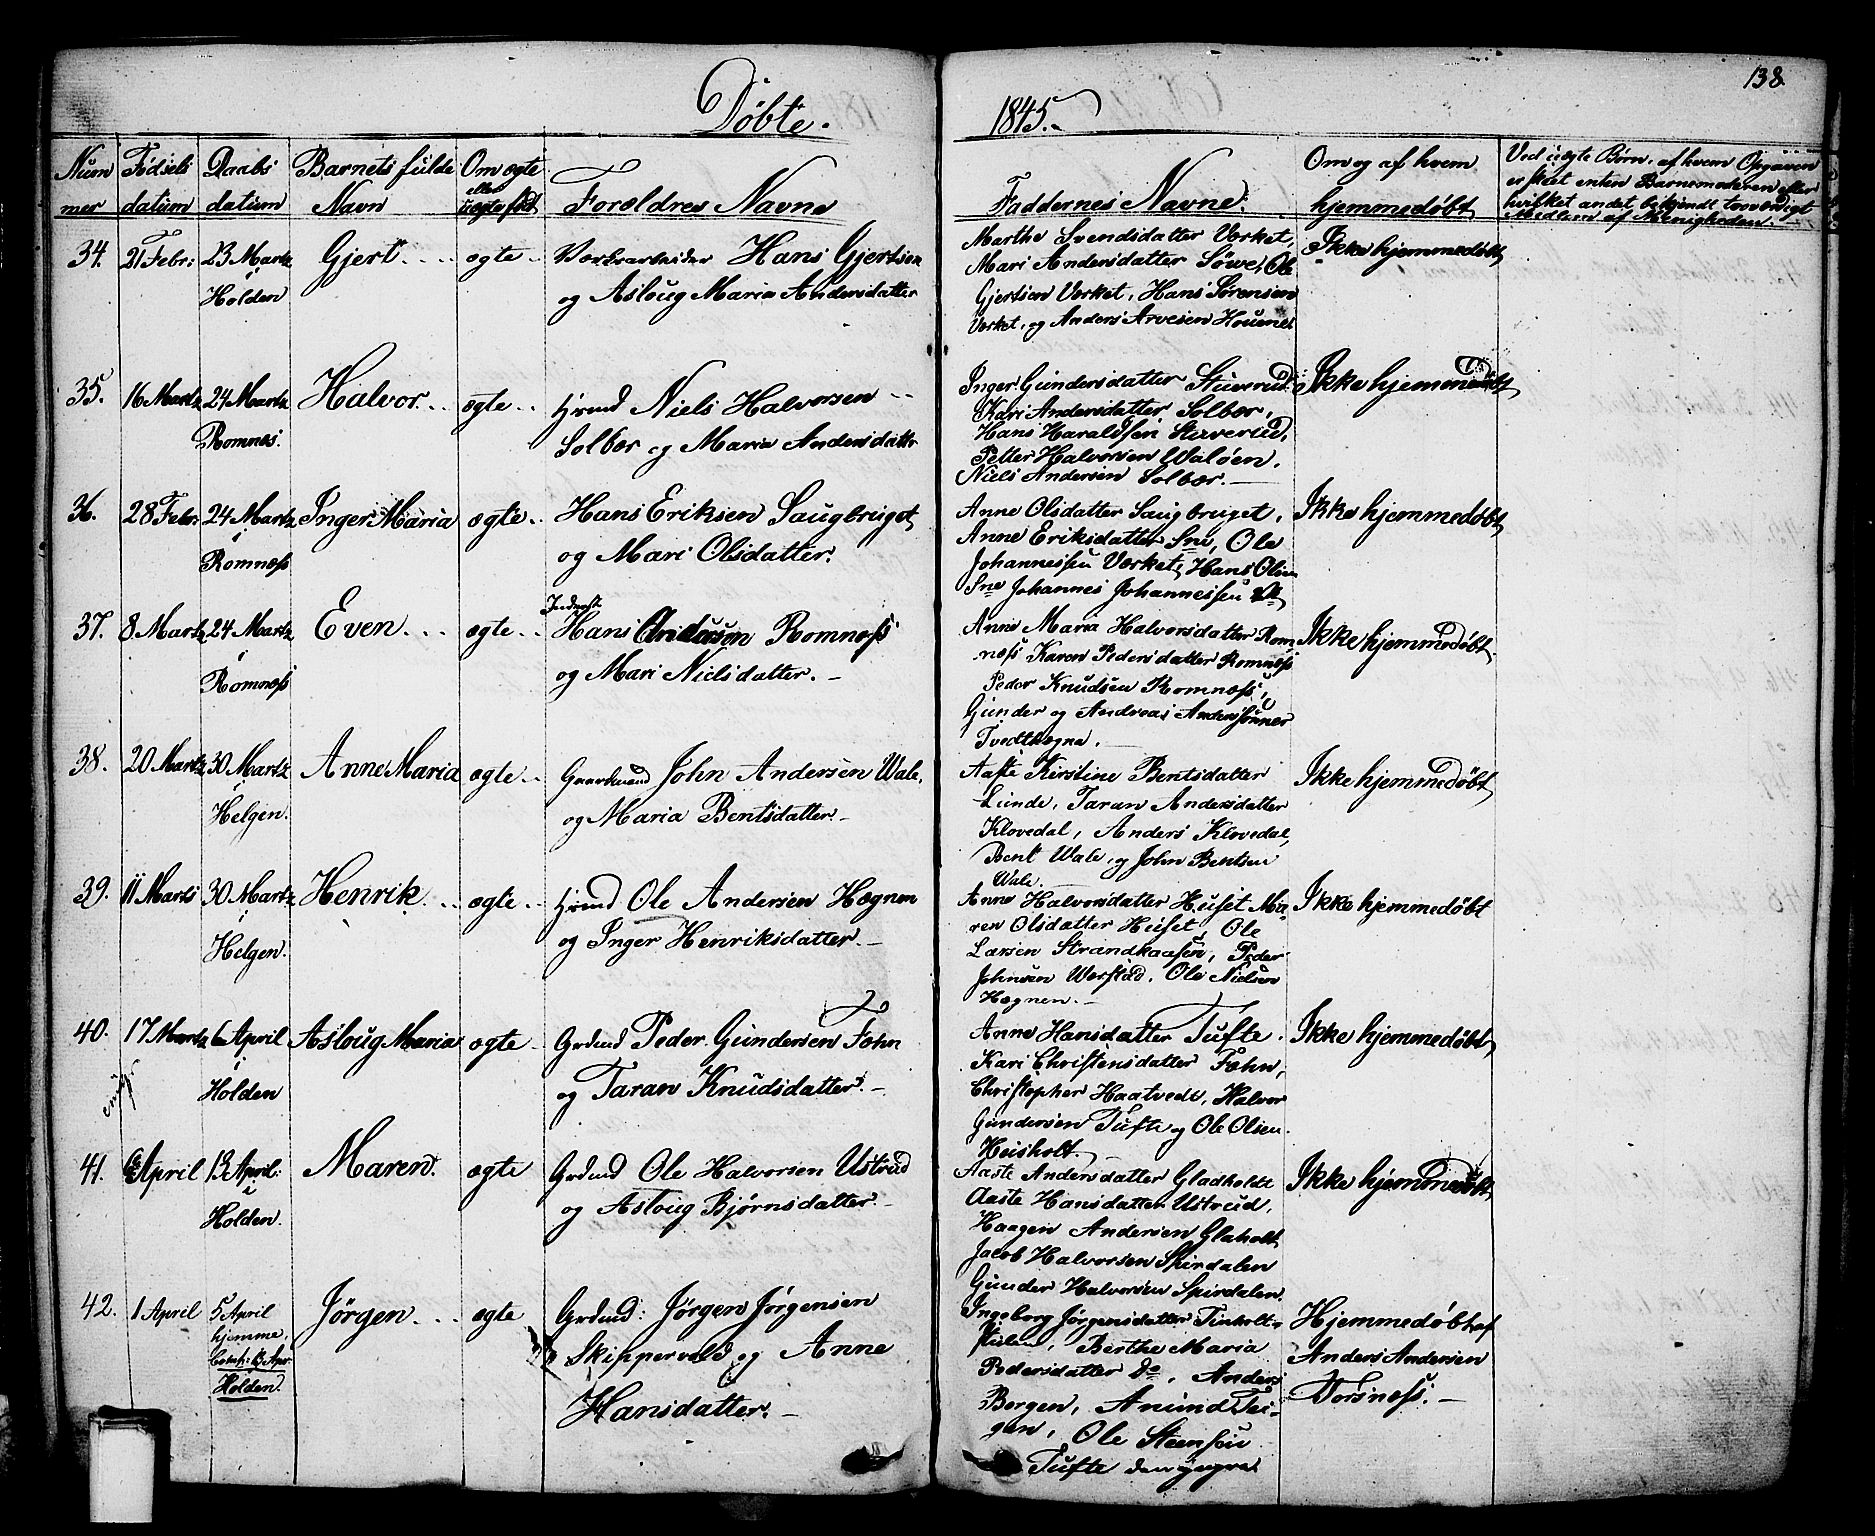 138.
Döbte. 1845.
Num mer
Födsels datum
Daabs datum
Barnets fulde Navn
Om ægte eller uægte född
Forældres Navne
Faddernes Navne.
Om og af hvem hjemmedöbt
Ved uægte Börn, af hvem Opgaven
er skeet enten Barnemoderen eller
hvilket andet bekjendt troværdigt
Medlem af Menigheden.
34.
21 Febr:
23 Martz
i
Holden
Gjert
ægte
Værksarbeider Hans Gjertsen
og Asloug Maria Andersdatter
Marthe Svendsdatter Værket,
Mari Andersdatter Söwe, Ole
Gjertsen Værket, Hans Sörensen
Værket, og Anders Arvesen
Ikke hjemmedöbt
35.
16 Martz
24 Martz
Romnes.
Halvor
ægte
Niels Halvorsen
Solbær og Maria Andersdatter
Inger Gundersdatter Staverud
Kari Andersdatter Solbær,
Hans Haraldsen Staverud,
Petter Halvorsen Waløen.
Niels Andersen Solbær.
Ikke hjemmedöbt
36.
28 Febr.
24 Martz
i
Romnæss
Inger Maria
ægte
Hans Eriksen Saugbruget
og Mari Olsdatter.
Anne Olsdatter Saugbruget,
Anne Eriksdatter Sne, Ole
Johannessen Værket, Hans Olsen
Sne Johannes Johannessen
Ikke hjemmedöbt
37.
8 Martz
24 Martz
i
Romnæss
Even
ægte
Inderst
Hans Andersen Romnæss
og Mari Nielsdatter.
Anne Maria Halvorsdatter Rom
næss Karen Pedersdatter Romnæss
Peder Knudsen Romnæss,
Gunder og Andreas Andersönner
Tvedthægna.
Ikke hjemmedöbt
38.
20 Martz
30 Martz
i
Helgen.
Anne Maria
ægte
Gaardmand John Andersen Wale,
og Maria Bentsdatter.
Aaste Kirstine Bentsdatter
Lunde, Taran Andersdatter
Klovedal, Anders Klovedal,
Bent Wale, og John Bentsen
Wale.
Ikke hjemmedöbt
39.
11 Marts
30 Martz
i
Helgen.
Henrik
ægte
Ole Andersen Hægnen
og Inger Henriksdatter.
Anne Halvorsdatter Huset Ma
ren Olsdatter Huset, Ole
Larsen Strandkaasen, Peder
Johnsen Werstad, Ole Nielsen
Hægnen.
Ikke hjemmedöbt
40.
17 Martz
6 April
i
Holden
Asloug Maria
ægte
Grdmd Peder Gundersen Fæhn
og Taran Knudsdatter.
Anne Hansdatter Tufte.
Kari Christensdatter Fæhn,
Christopher Haatvedt, Halvor
Gundersen Tufte og Ole Olsen
Heisholt.
Ikke hjemmedöbt
41.
6 April
13 April:
i
Holden.
Maren
ægte
Grdmd Ole Halvorsen Ustrud
og Asloug Bjørnsdatter.
Aaste Andersdatter Gladholdt
Aaste Hansdatter Ustrud,
Haagen Andersen Glaholt
Jacob Halvorsen Spirdalen
Gunder Halvorsen Spirdalen.
Ikke hjemmedöbt
42.
1 April
5 April
hjemme,
Holden.
Jörgen
ægte
Grdmd: Jörgen Jörgensen
Skippervold og Anne
Hansdatter.
Ingeborg Jörgensdatter Tinholt
Berthe Maria
Pedersdatter do, Anders
Bergen, Amund Tei-
gen, Ole Steensen
Tufte den yngre
Hjemmedöbt af
Anders Andersen
Torsnæss.